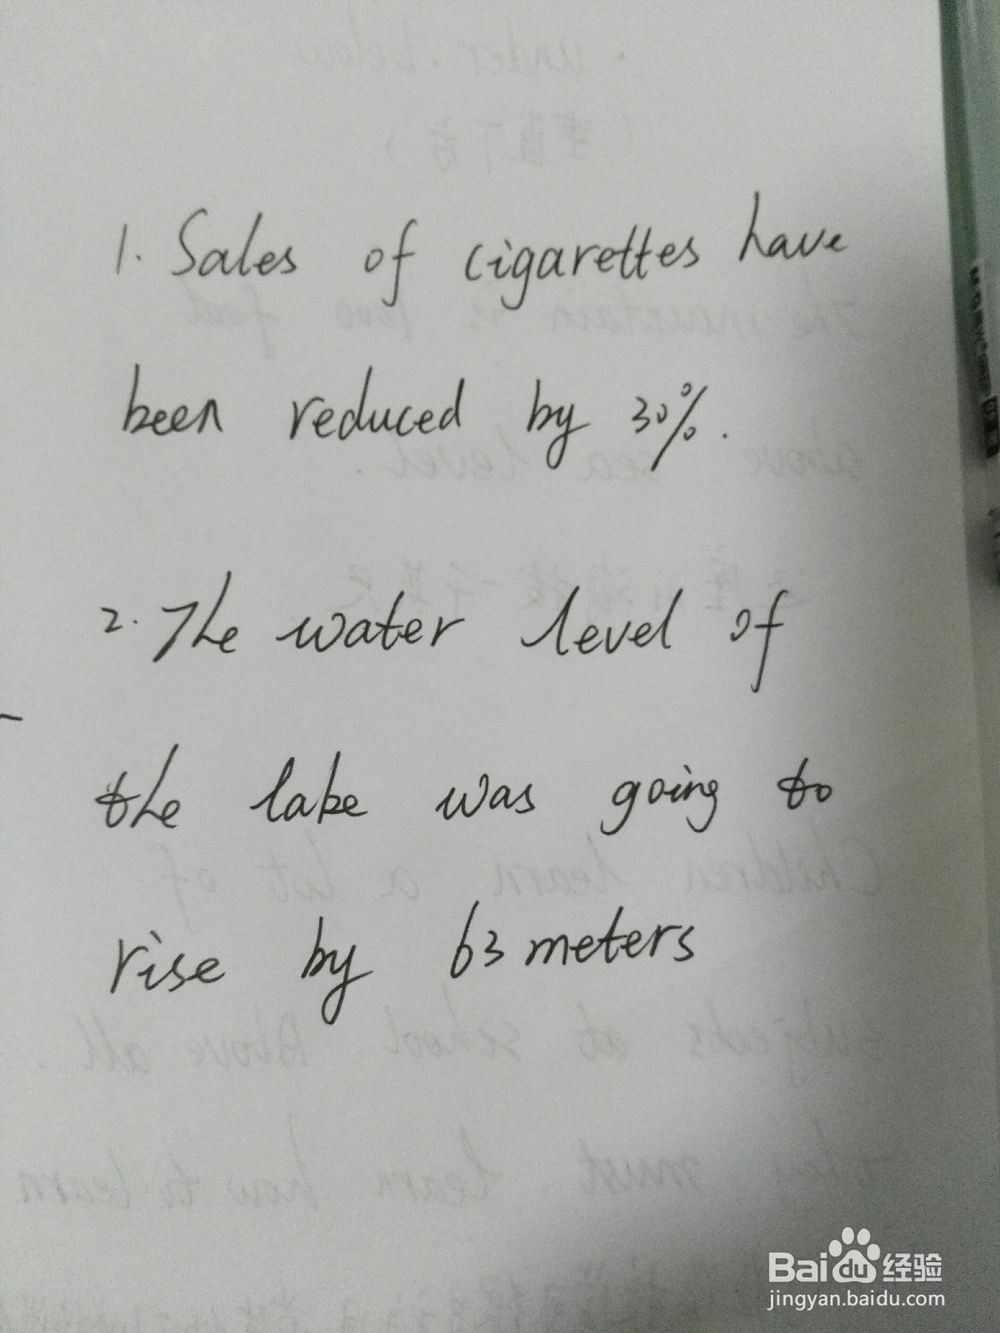 1. Sales of cigarettes have
been reduced by 30%.
2. The water level of
the lake was going to
rise by 63 meters
Baidu 经验
jingyan.baidu.com